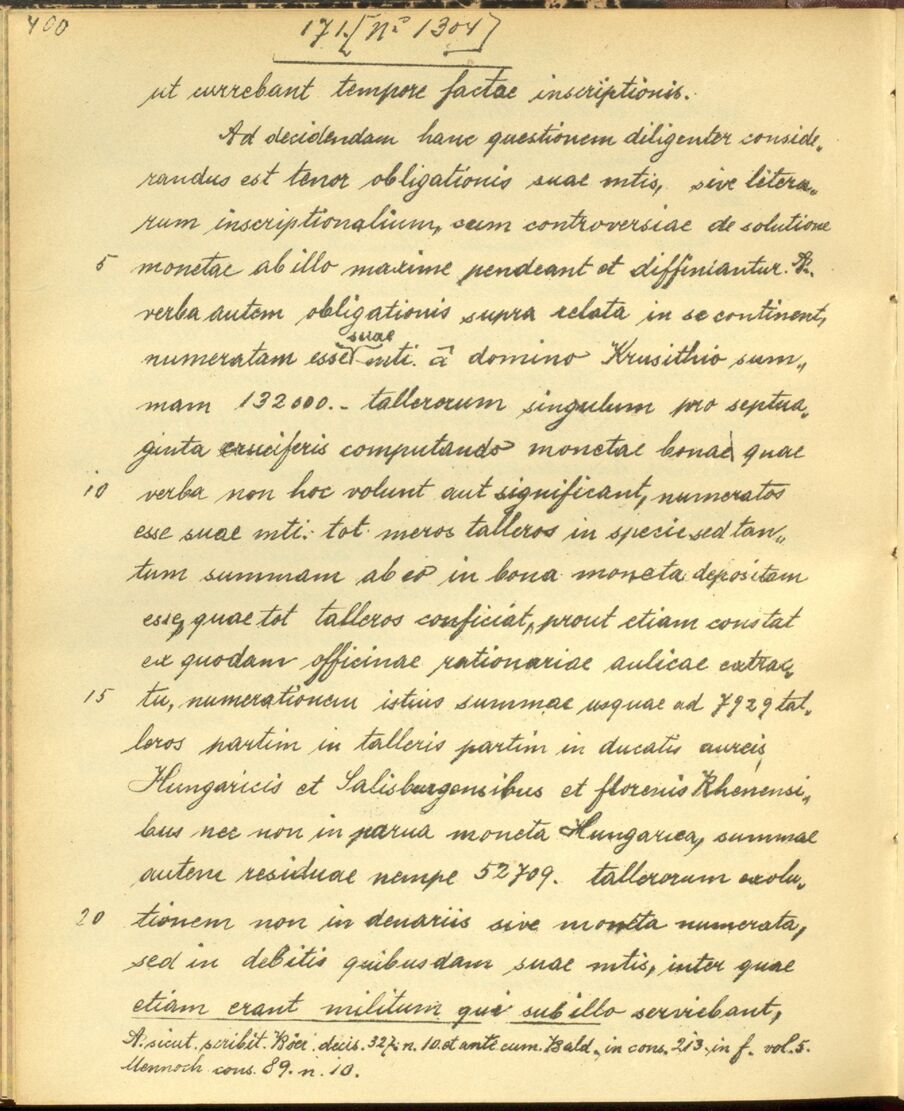 400
171. [Nº 1304]
ut currebant tempore factae inscriptionis.
Ad decidendam hanc questionem diligenter conside„
randus est tenor obligationis suae mtis, sive litera„
rum inscriptionalium, cum controversiae de solutione
5 monetae ab illo maxime pendeant et diffiniantur. A.
verba autem obligationis supra relata in se continent,
suae
numeratam esse mti. â domino Krusithio sum„
mam 132000.- tallerorum singulum pro septua„
ginta cruciferis computando monetae bonae quae
10 verba non hoc volunt aut significant, numeratos
esse suae mti. tot meros talleros in specie sed tan„
tum summam ab eo in bona moneta depositam
esse, quae tot talleros conficiat, prout etiam constat
ex quodam officinae rationariae aulicae extrac„
15 tu, numerationem istius summae usquae ad 7929 tal„
leros partim in talleris partim in ducatis aureis
Hungaricis et Salisburgensibus et florenis Rhenensi„
bus nec non in parua moneta Hungarica, summae
autem residuae nempe 52709. tallerorum exolu„
20 tionem non in denariis sive moneta numerata,
sed in debitis quibusdam suae mtis, inter quae
etiam erant militum qui sub illo serviebant,
A. sicut scribit Röci decis. 327. n. 10. et ante eum Bald. in cons. 213. in f. vol. 5.
Mennoch cons. 89. n. 10.